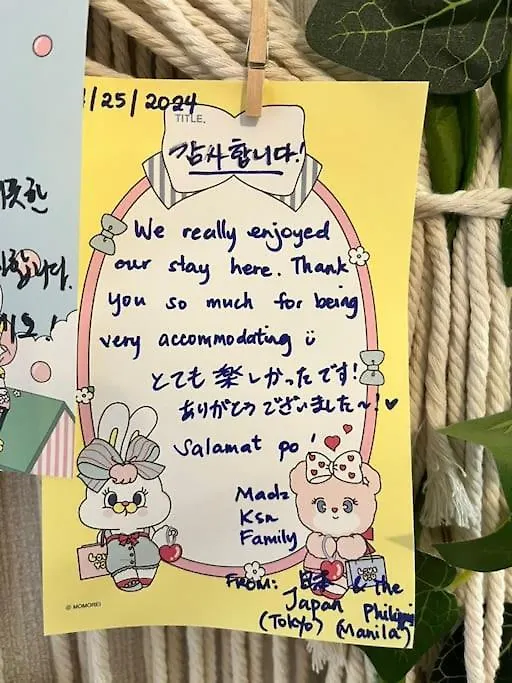 /25/2024
TITLE.
감사합니다!
We really enjoyed
our stay here. Thank
you so much for being
very accommodating ü
とても楽しかったです!
ありがとうございました~!♥
Salamat po!
Family
From: 日本 & the
Japan Philippi
(Tokyo) (Manila)
© MOMOREI